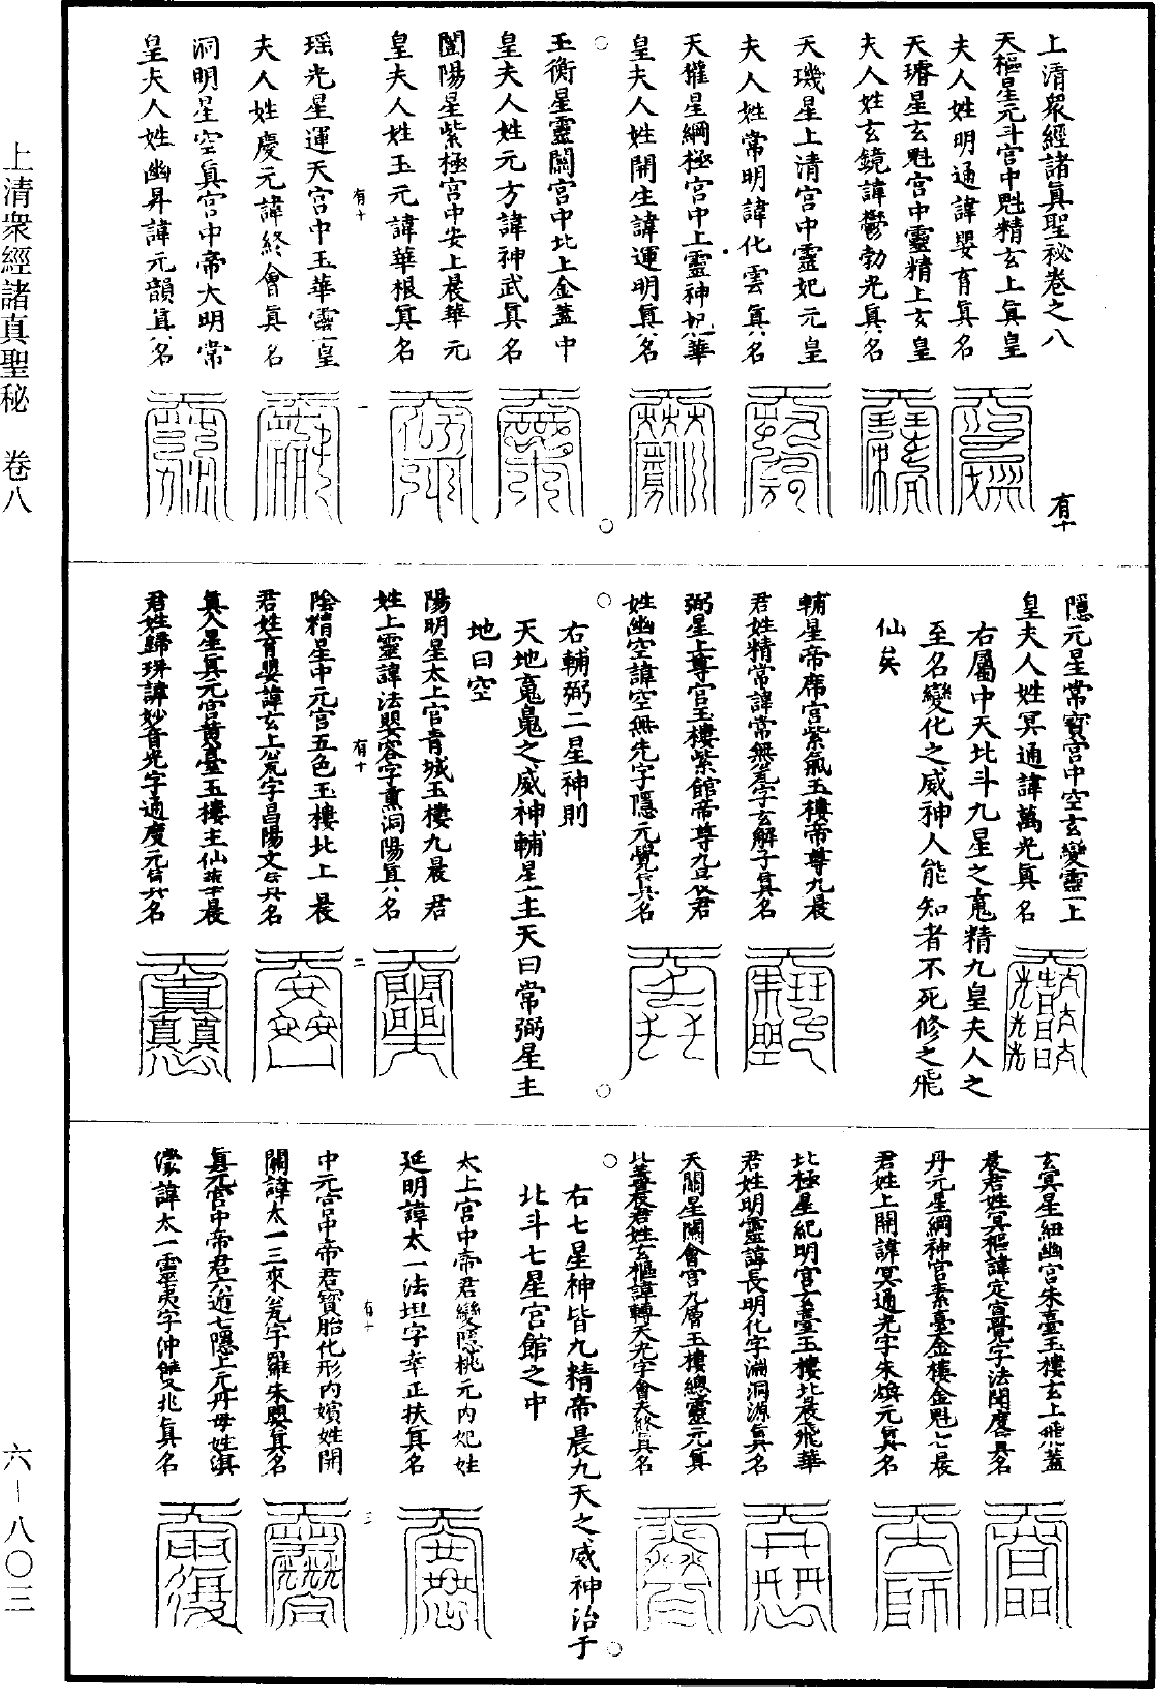 上清衆經諸眞聖秘卷之八
有十
天樞星元斗宮中魁精玄上眞皇
夫人姓明通諱嬰育眞名
天璿星玄魁宮中靈精上玄皇
夫人姓玄鏡諱鬱勃光眞名
天璣星上清宮中靈妃元皇
夫人姓常明諱化雲眞名
天權星綱極宮中上靈神妃華
皇夫人姓開生諱運明眞名
玉衡星靈關宮中北上金蓋中
皇夫人姓元方諱神武眞名
闓陽星紫極宮中安上晨華元
皇夫人姓玉元諱華根眞名
有十
一
瑶光星運天宮中玉華靈皇
夫人姓慶元諱終會眞名
洞明星空眞宮中帝大明常
皇夫人姓幽昇諱元韻眞名
隱元星常寶宮中空玄變靈上
皇夫人姓冥通諱萬光眞名
右屬中天北斗九星之䰟精九皇夫人之
至名變化之威神人能知者不死修之飛
仙矣
輔星帝席宮紫氣玉樓帝尊九晨
君姓精常諱常無羌字玄解子眞名
弼星上尊宮玉樓紫館帝尊九晨君
姓幽空諱空無先字隱元覺眞名
右輔弼二星神則
天地䰟䰟之威神輔星主天曰常弼星主
地曰空
陽明星太上宮青城玉樓九晨君
姓上靈諱法嬰容字熏洞陽眞名
有十
二
陰精星中元宮五色玉樓北上晨
君姓育嬰諱玄上羌字昌陽文眞名
眞人星眞元宮黃臺玉樓主仙華晨
君姓歸珠諱妙音光字通度元眞名
玄冥星紐幽宮朱臺玉樓玄上飛蓋
晨君姓冥樞諱定宮覺字法開度眞名
丹元星綱神宮素臺金樓金魁七晨
君姓上開諱冥通光字朱煥元眞名
北極星紀明宮玄臺玉樓北晨飛華
君姓明靈諱長明化字淵洞源眞名
天關星關會宮九層玉樓總靈元眞
北蓋晨君姓玄樞諱轉天光字會天終眞名
右七星神皆九精帝晨九天之威神治于
北斗七星宮館之中
太上宮中帝君變隱桃元内妃姓
延明諱太一法坦字幸正扶眞名
有十
三
中元宮中帝君寶胎化形内嬪姓開
關諱太一三來羌字羅朱嬰眞名
眞元宮中帝君六遁七隱上元丹母姓
諱太一靈夷字仲雙兆眞名
上清衆經諸真聖秘　卷八
六－八〇三